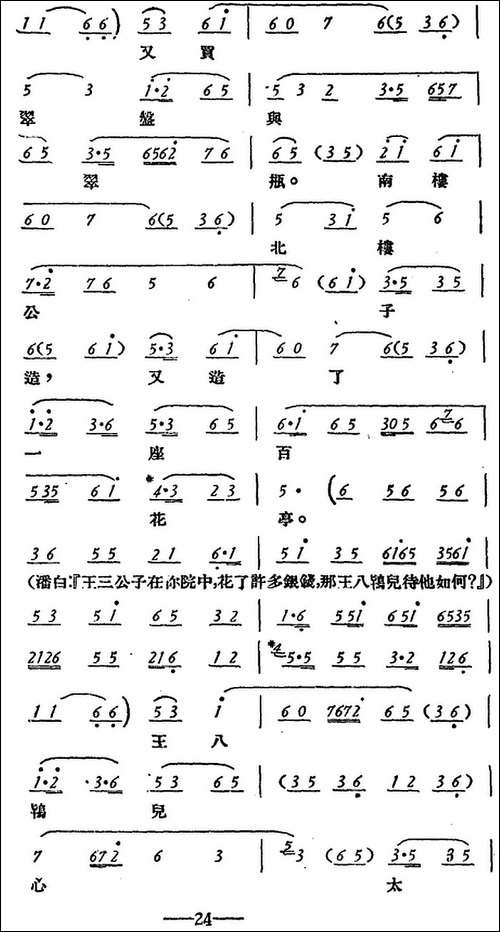 1 1 6 6) 5 3 6 1 | 6 0 7 6(5 3 6)
又 買
5 3 1·2 6 5 | 5 3 2 3·5 657
翠 盤 與
6 5 3·5 6562 7 6 | 6 5 (3 5) 2 1 6 1
翠 瓶。 南 樓
6 0 7 6(5 3 6) | 5 3 1 5 6
北 樓
7·2 7 6 5 6 | 7 6 (6 1) 3·5 3 5
公 子
6(5 6 1) 5·3 6 1 | 6 0 7 6(5 3 6)
造, 又 造 了
1·2 3·6 5·3 6 5 | 6·1 6 5 305 6 7 6
一 座 百
535 6 1 #4·3 2 3 | 5· (6 5 6 5 6
花 亭。
3 6 5 5 2 1 6·1 | 5 1 3 5 6165 3561
(潘白:『王三公子在你院中,花了許多銀錢,那王八鴇兒待他如何?』)
5 3 5 1 6 5 3 2 | 1·6 551 651 6535
2126 5 5 216 1 2 | #4 5·5 5 5 3·2 126
1 1 6 6) 5 3 1 | 6 0 7672 6 5 (3 6)
王 八
1·2 3·6 5 3 6 5 | (3 5 3 6 1 2 3 6)
鴇 兒
7 672 6 3 | 5 3 (6 5) 3·5 3 5
心 太
—24—